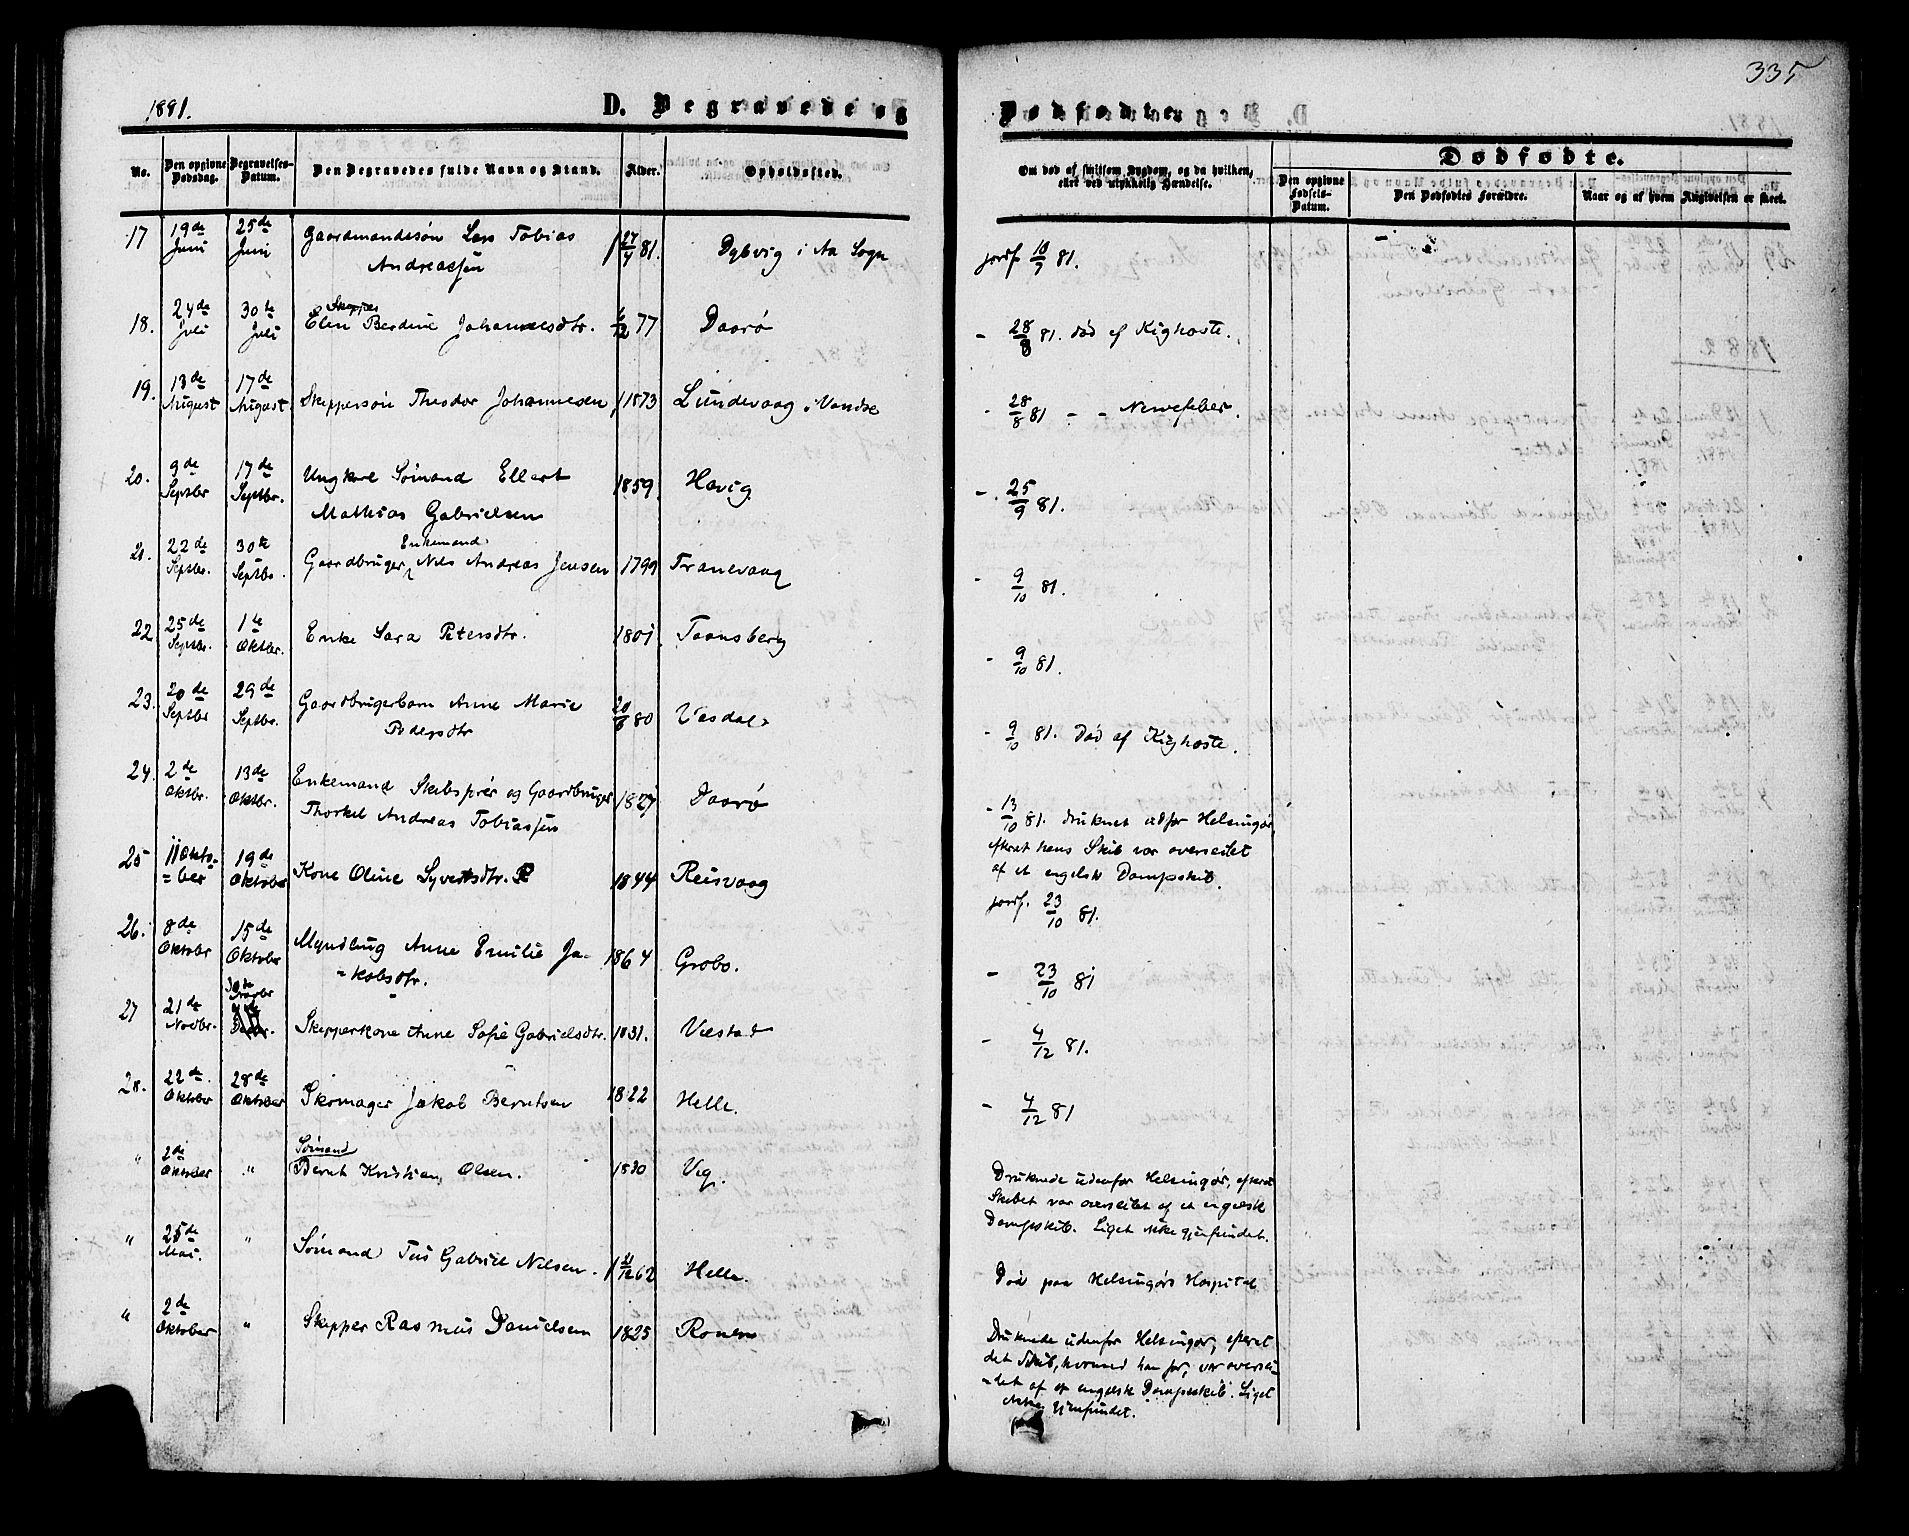 1881.
D. Begravede og
Dødfødte.
335
No.
Den opgivne Dødsdag.
Begravelses-Datum.
Den Begravedes fulde Navn og Stand.
Alder.
Opholdssted.
Om død af smitsom Sygdom, og da hvilken, eller ved ulykkelig Hændelse.
Dødfødte.
Den opgivne Fødsels-Datum.
Den Dødfødtes Forældre.
Naar og af hvem Angivelsen er skeet.
17 19de Juni 25de Juni Gaardmandssøn Lars Tobias Andreassen 27/4 81. Dybvig i Aa Sogn jordf. 10/7 81.
18. 24de Juli 30te Juli Skippers Elen Berdine Johannesdtr. 6/12 77 Daarø - 28/8 81. død af Kighoste.
19. 13de August 17de August Skippersøn Theodor Johannesen 1873 Lundevaag i Vandse - 28/8 81 - - Nervefeber.
20. 9de Septbr 17de Septbr. Ungkarl Sømand Ellert Mathias Gabrielsen 1859 Havig - 25/9 81.
21. 22de Septbr. 30te Septbr. Gaardbruger Enkemand Nils Andreas Jensen 1799 Tranevaag - 9/10 81.
22 25de Septbr. 1te Oktbr. Enke Sara Petersdtr. 1801 Taansberg - 9/10 81.
23. 20de Septbr 29de Septbr. Gaardbrugerbarn Anne Marie Pedersdtr 20/8 80 Vasdal - 9/10 81. Død af Kighoste.
24. 2de Oktbr. 13de Oktbr. Enkemand Skibsfører og Gaardbruger Thorkel Andreas Tobiassen 1827 Daarø - 13/10 81. druknet udfor Helsingør,
efterat hans Skib var overseilet
af et engelsk Dampskib.
25 11 Oktober 19de Oktober Kone Oline Syvertsdtr. 1844 Reisvaag jordf. 23/10 81.
26. 8de Oktober 15de Oktober Myndling Anne Emilie Jakobsdtr. 1864 Grobs. - 23/10 81
27 21de Novbr. 30de Novbr Skipperkone Anne Sofie Gabrielsdtr. 1831. Væstad - 4/12 81.
28. 22de Oktober 28de Oktober Skomager Jakob Berntsen 1822 Helle. - 4/12 81
" 2de Oktober " Sømand Bernt Kristian Olsen. Vig. Druknede udenfor Helsingør, efterat
Skibet var overseilet af et engelsk
Dampskib. Liget ikke gjenfundet.
" 25de Mai. " Sømand Gabriel Nilsen. 62 Helle. Død paa Helsingørs Hospital
" 2de Oktober " Skipper Rasmus Danielsen 1825 Druknede udenfor Helsingør, efterat
det Skib, hvormed han for, var oversei-
let af et engelsk Dampskib. Liget
ikke gjenfundet.